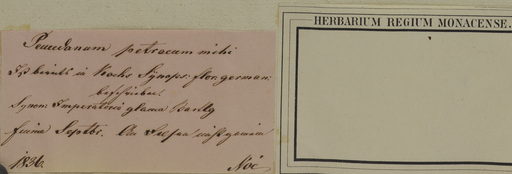 Peucedanum petraeum mihi
Ist bereits in Kochs Synops. flor. german.
beschrieben.
Synon. Imperatoria
Fiume Septbr.
1836. Noë
HERBARIUM REGIUM MONACENSE.